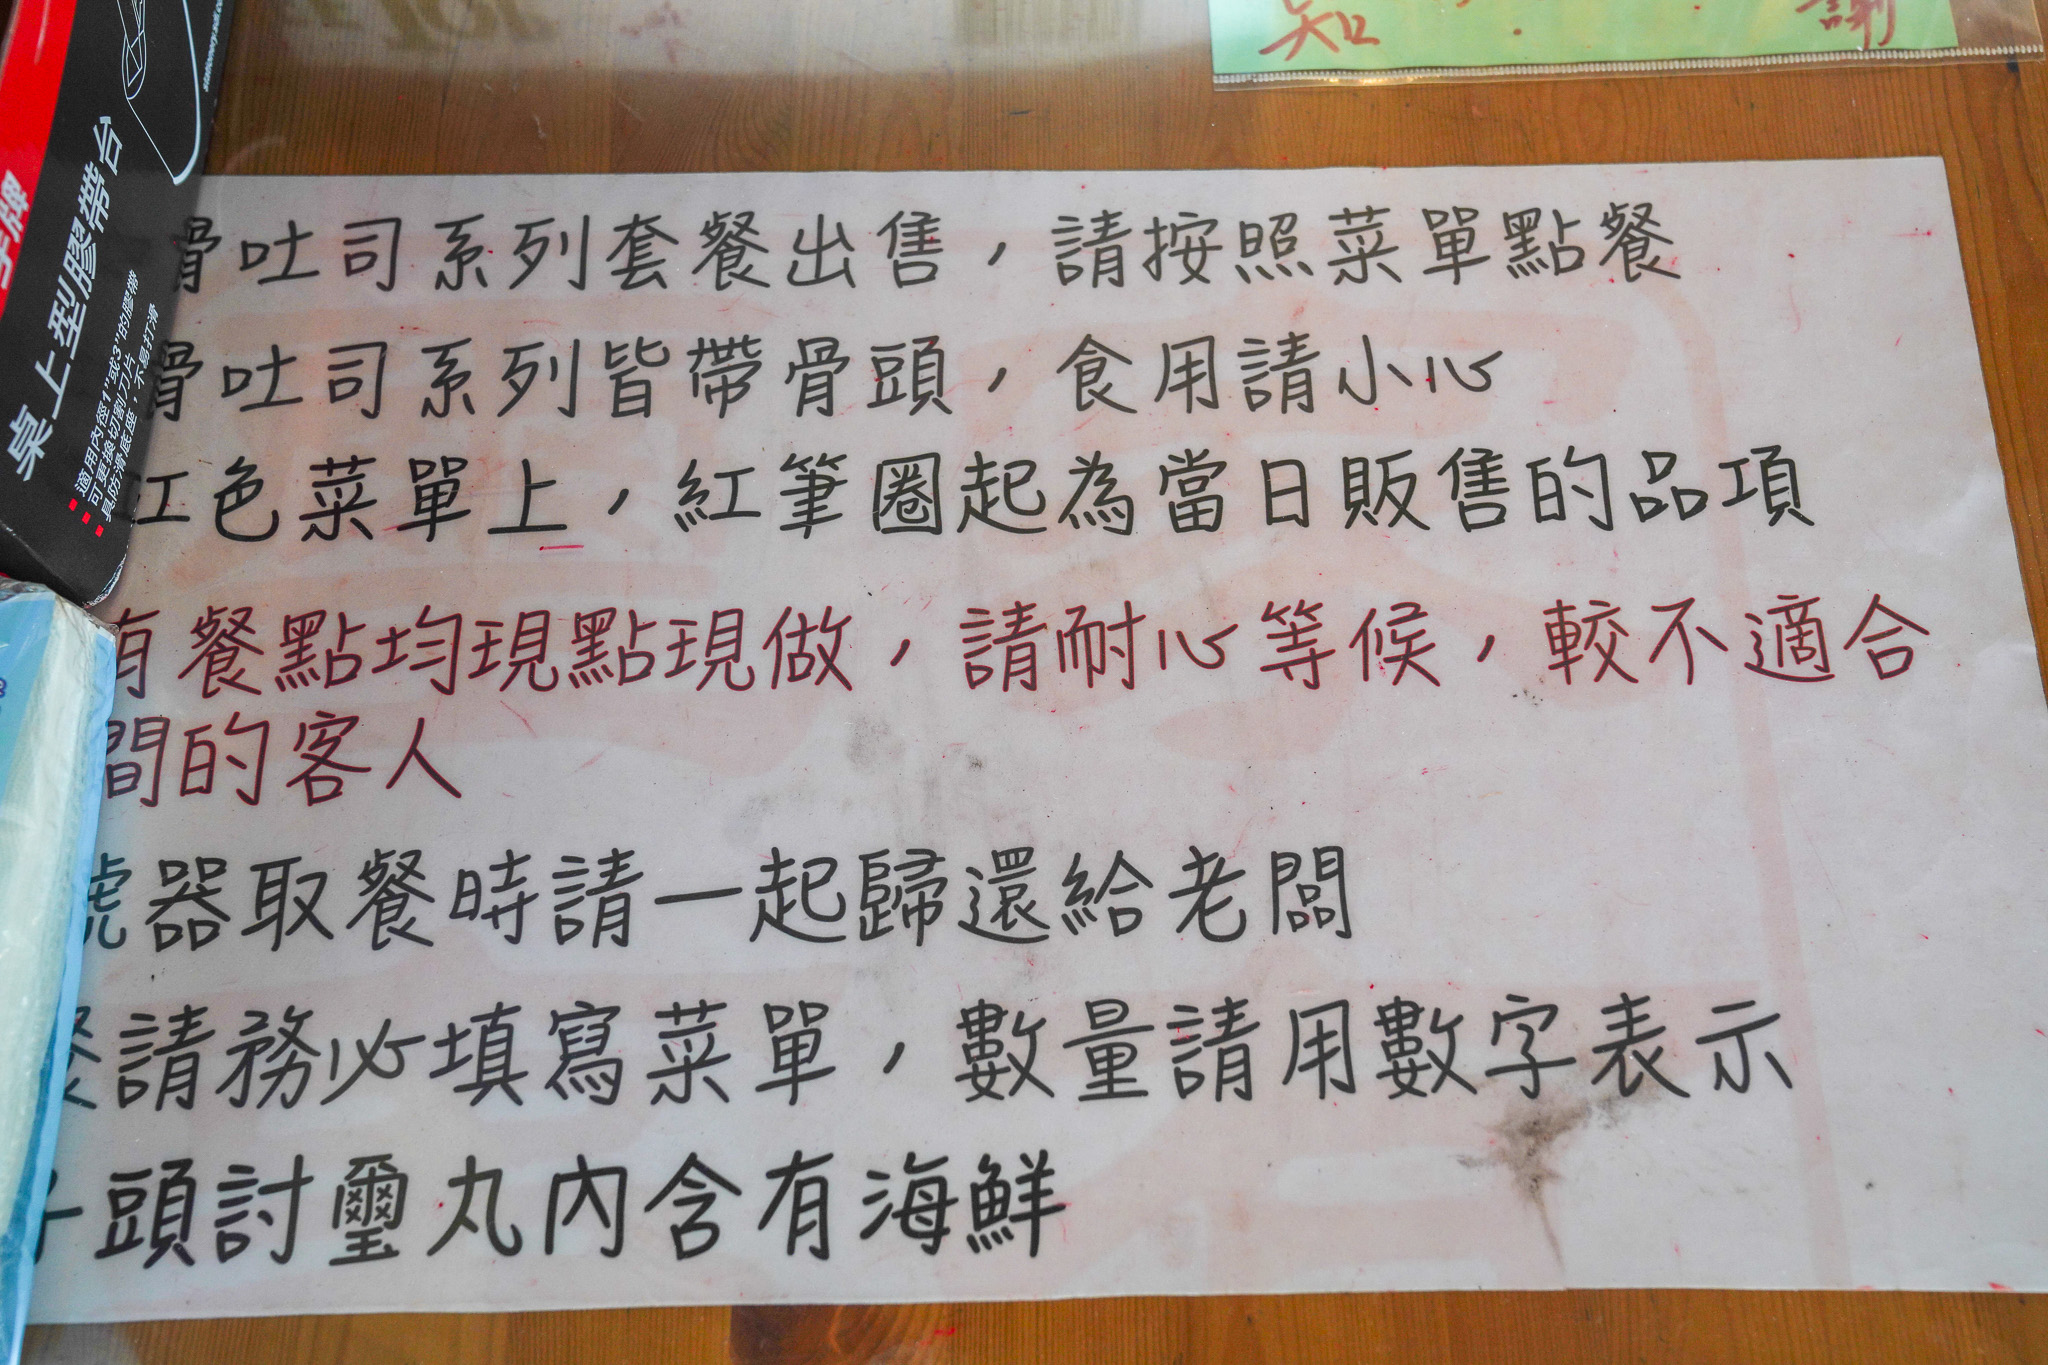 知
謝
stationery.sdi.com
手牌
桌上型膠帶台
適用內徑1"或3"的膠帶
可更換切割刀片
具防滑底座，不易打滑
骨吐司系列套餐出售，請按照菜單點餐
骨吐司系列皆帶骨頭，食用請小心
紅色菜單上，紅筆圈起為當日販售的品項
有餐點均現點現做，請耐心等候，較不適合
間的客人
號器取餐時請一起歸還給老闆
餐請務必填寫菜單，數量請用數字表示
頭討璽丸內含有海鮮